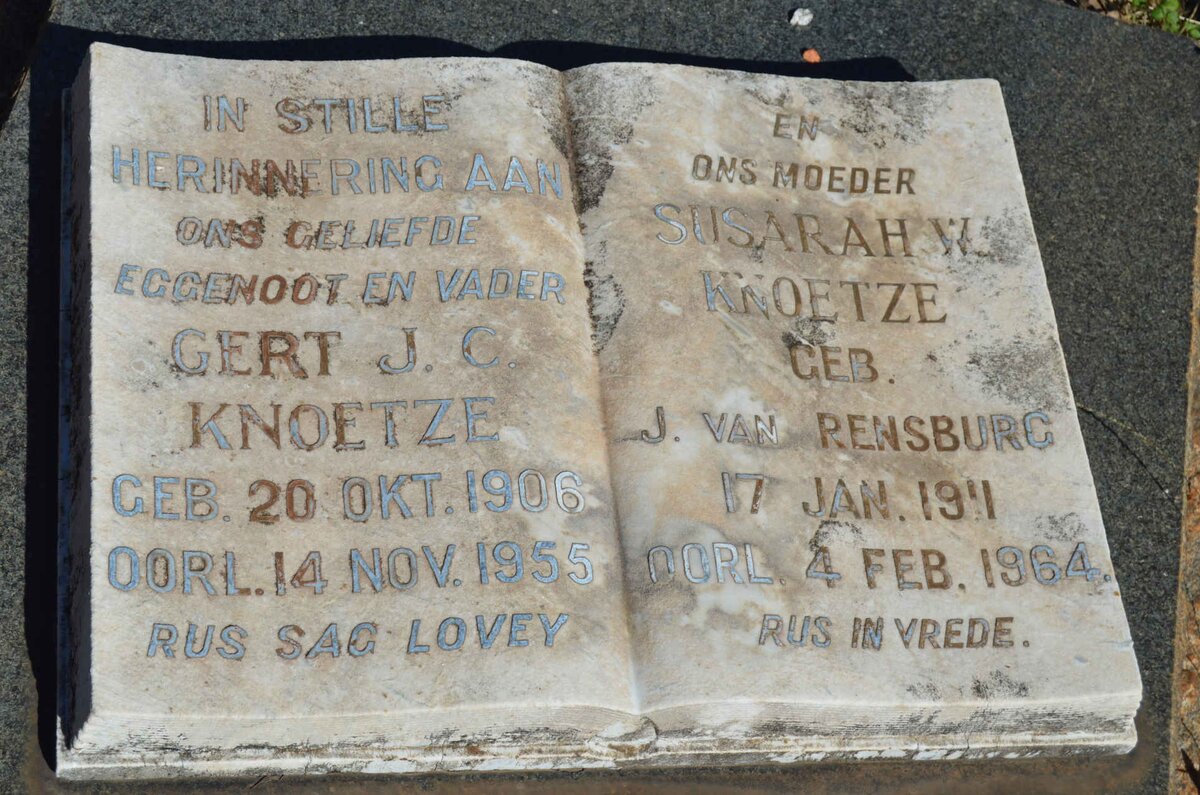 IN STILLE
HERINNERING AAN
ONS GELIEFDE
EGGENOOT EN VADER
GERT J. C.
KNOETZE
GEB. 20 OKT. 1906
OORL. 14 NOV. 1955
RUS SAG LOVEY
EN
ONS MOEDER
SUSARAH W.
KNOETZE
GEB.
J. VAN RENSBURG
17 JAN. 1911
OORL. 4 FEB. 1964.
RUS IN VREDE.